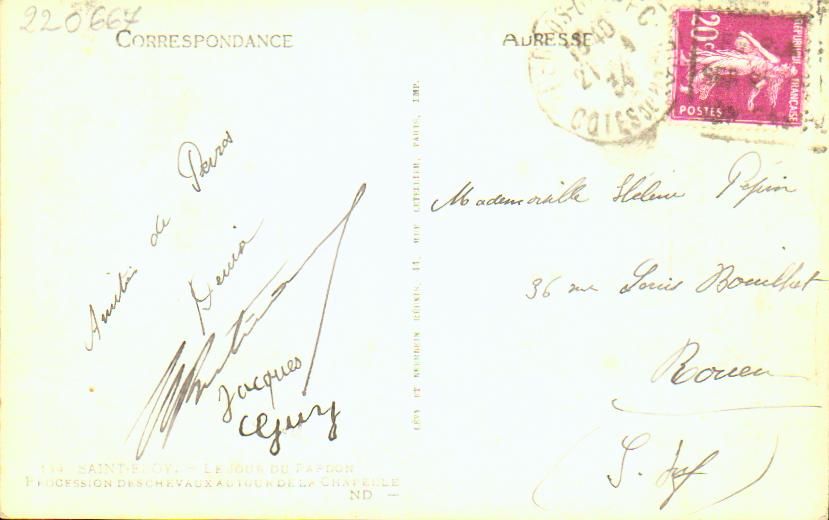 220667
CORRESPONDANCE
ADRESSE
20c
POSTES
REPUBLIQUE FRANÇAISE
1840
21
34
Amitiés de Perros
Denia
Jacques
Guy
LÉVY ET NEURDEIN RÉUNIS, 44, RUE LETELLIER, PARIS, IMP.
Mademoiselle Hélène Pépin
36 rue Louis Bouilhet
Rouen
(S. Inf)
SAINT-ELOY. - LE JOUR DU PARDON
PROCESSION DES CHEVAUX AUTOUR DE LA CHAPELLE
ND —